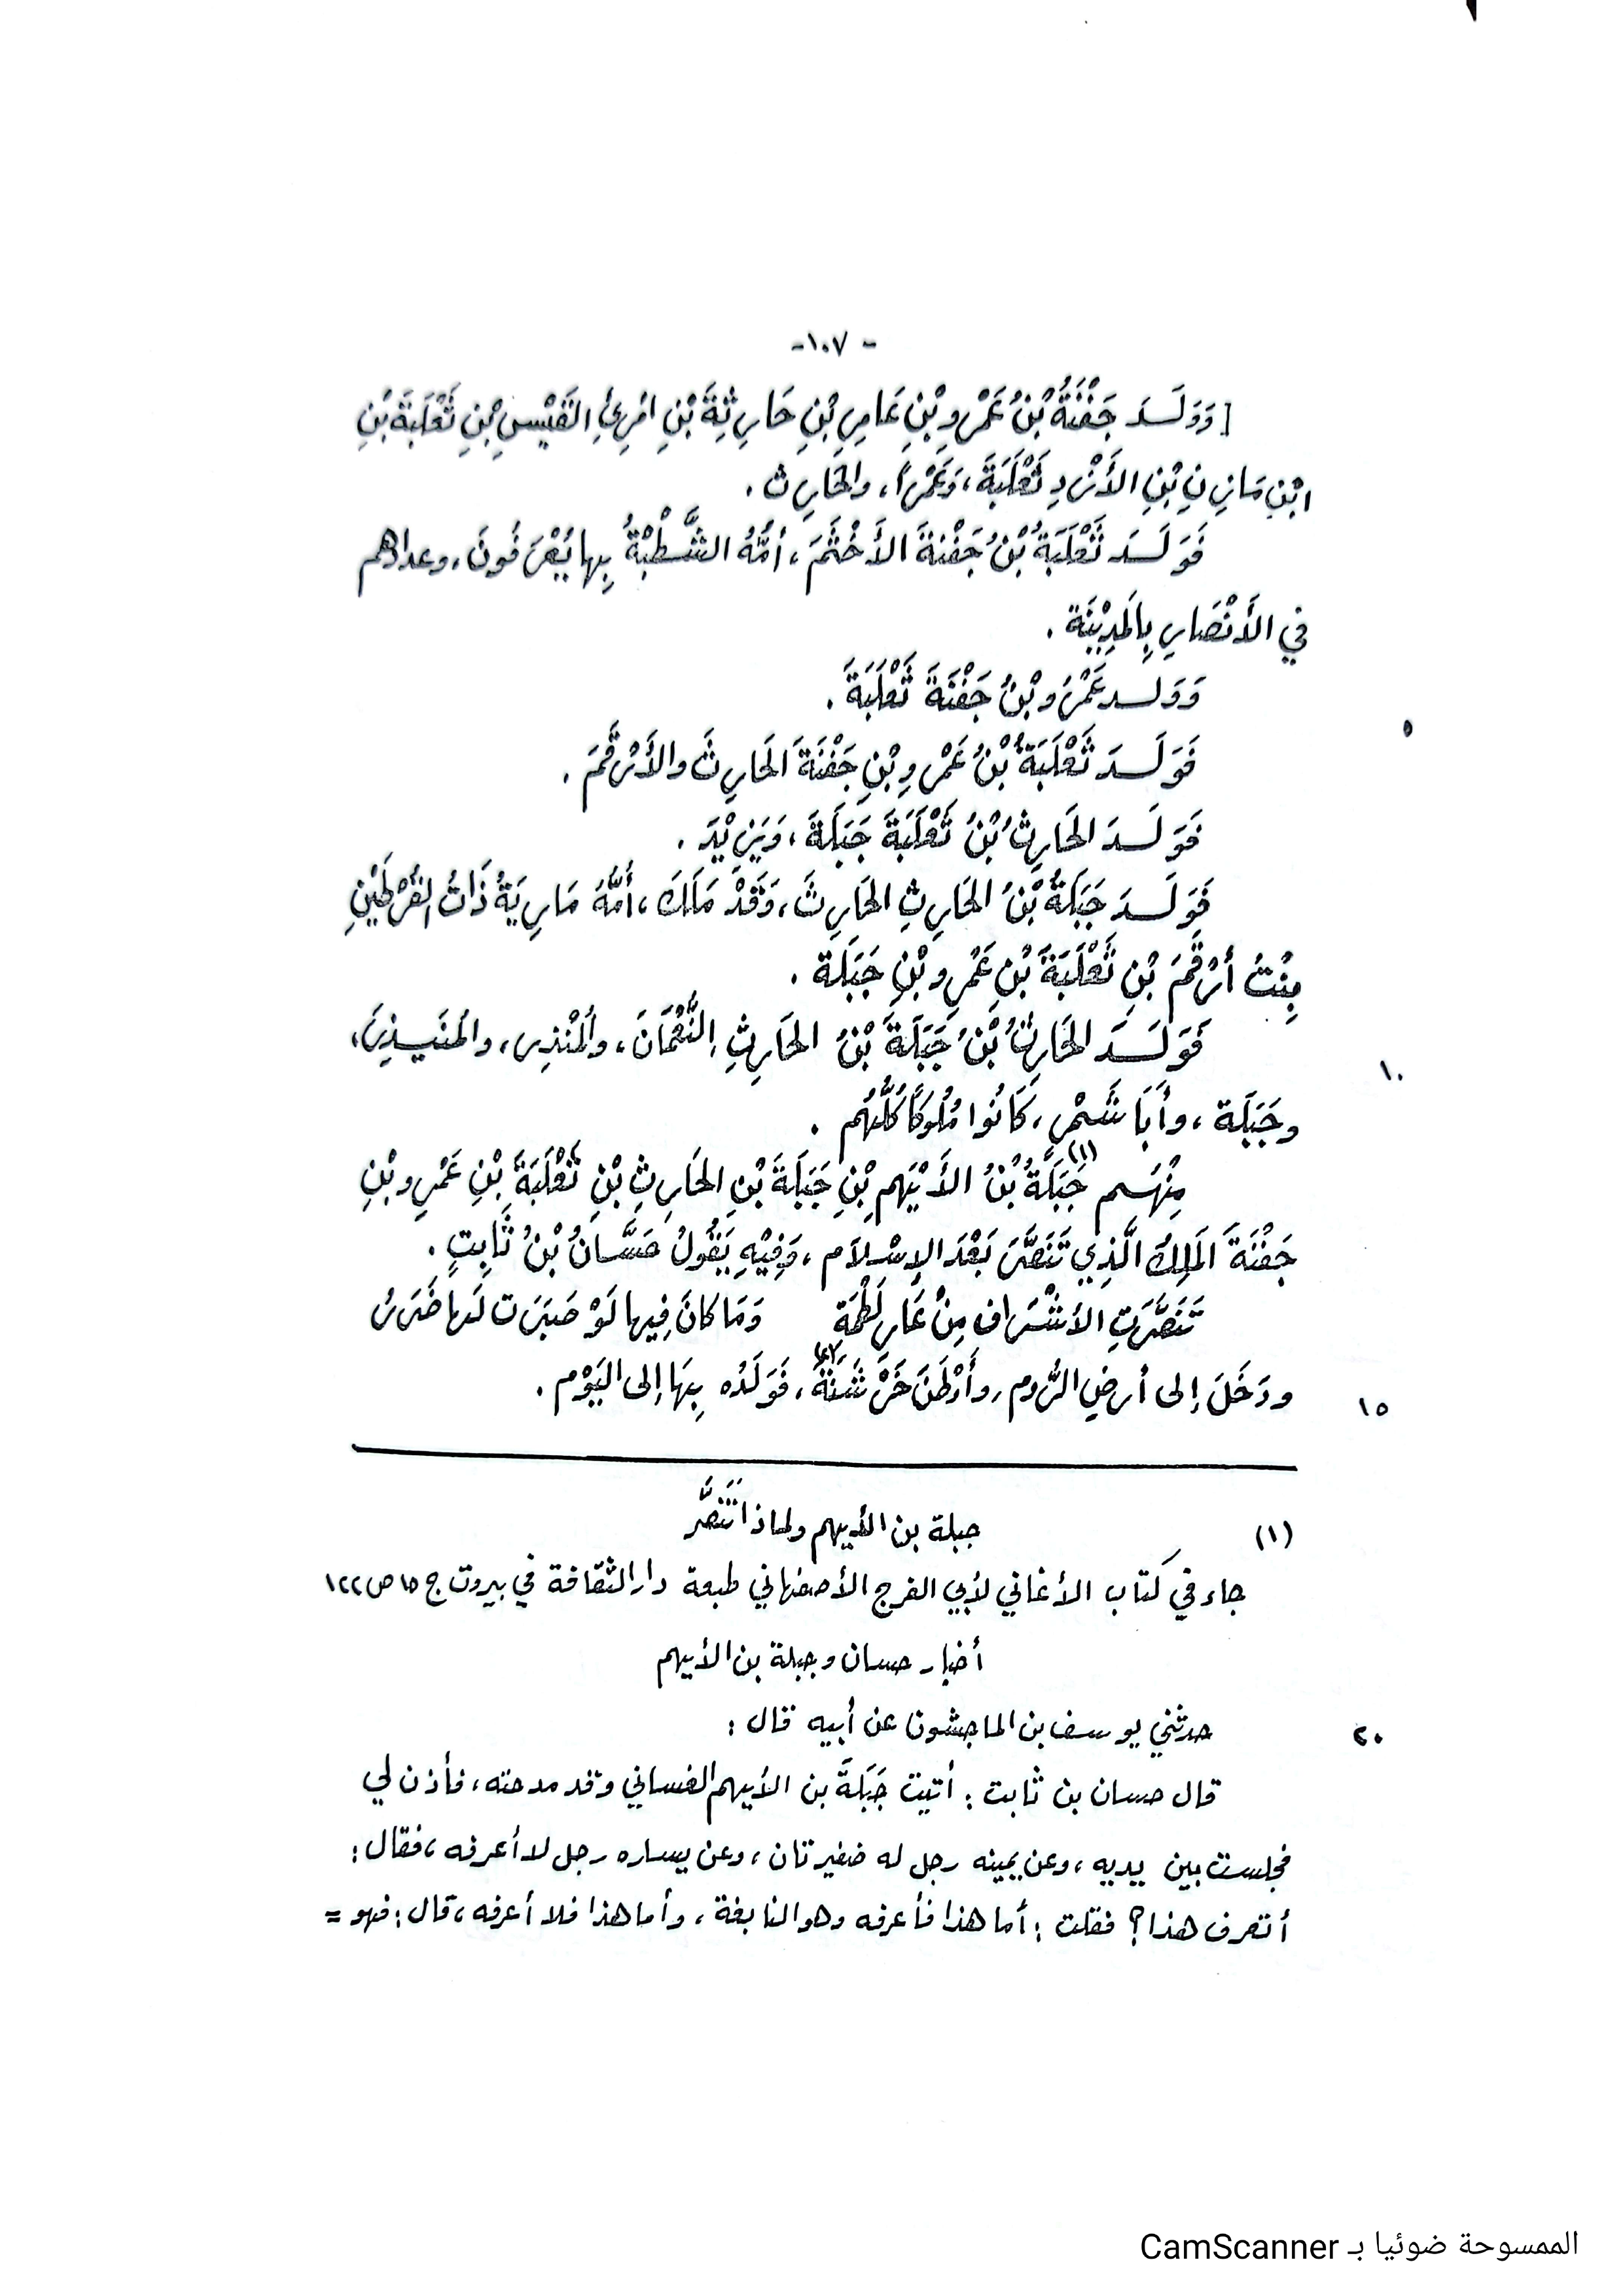 - ١٠٧ -
[وَوَلَـدَ جَفْنَةُ بْنُ عَمْرِو بْنِ عَامِرِ بْنِ حَارِثَةَ بْنِ امْرِئِ القَيْسِ بْنِ ثَعْلَبَةَ بْنِ
ابْنِ مَازِنِ بْنِ الأَزْدِ ثَعْلَبَةَ، وَعَمْراً، والحَارِث .
فَوَلَـدَ ثَعْلَبَةُ بْنُ جَفْنَةَ الأَخْثَمَ، أُمُّهُ الشَّطْبَةُ بِها يُعْرَفُونَ، وعدادهم
في الأَنْصَارِ بِالمَدِيْنَة .
وَوَلـد عَمْرُو بْنُ جَفْنَةَ ثَعْلَبَةَ .
٥
فَوَلَـدَ ثَعْلَبَةُ بْنُ عَمْرِو بْنِ جَفْنَةَ الحَارِثَ والأَرْقَمَ .
فَوَلَـدَ الحَارِثُ بْنُ ثَعْلَبَةَ جَبَلَةَ، وَيَزِيْدَ .
فَوَلَـدَ جَبَلَةُ بْنُ الحَارِثِ الحَارِثَ، وَقَدْ مَلَكَ، أُمُّهُ مَارِيَةُ ذَاتُ القُرْطَيْنِ
بِنْتُ أَرْقَمَ بْنِ ثَعْلَبَةَ بْنِ عَمْرِو بْنِ جَبَلَة .
فَوَلَـدَ الحَارِثُ بْنُ جَبَلَةَ بْنُ الحَارِثِ النُّعْمَانَ، والمُنْذِر، والمُنَيـذِرَ،
١٠
وجَبَلَة، وأَبَا شَمْرٍ، كَانُوا مُلُوكاً كُلُّهُم .
مِنْهُـم جَبَلَةُ(١) بْنُ الأَيْهَمِ بْنِ جَبَلَةَ بْنِ الحَارِثِ بْنِ ثَعْلَبَةَ بْنِ عَمْرِو بْنِ
جَفْنَةَ المَلِكُ الَّذِي تَنَصَّرَ بَعْدَ الإِسْلَام، وَفِيْهِ يَقُولُ حَسَّانُ بْنُ ثَابِتٍ .
تَنَصَّرَتِ الأشْرَاف مِنْ عَارِ لَطْمَةٍ وَمَا كانَ فِيها لَوْ صَبَرَت لَها ضَرَرُ
ودَخَلَ إلى أرضِ الرُّوم، وأَوْطَنَ خَرْشَنَةَ(٢)، فَوَلَدُه بِهَا إلى اليَوْم .
١٥
(١) جبلة بن الأيهم ولماذا تَنَصَّر
جاء في كتاب الأغاني لأبي الفرج الأصفهاني طبعة دار الثقافة في بيروت ج ١٥ ص ١٢٢
أخبار حسان وجبلة بن الأيهم
حدثني يوسف بن الماجشون عن أبيه قال :
٢٠
قال حسان بن ثابت : أتيت جَبَلَةَ بن الأيهم الغساني وقد مدحته، فأذن لي
فجلست بين يديه، وعن يمينه رجل له ضفيرتان، وعن يساره رجل لا أعرفه، فقال :
أتعرف هذا؟ فقلت : أما هذا فأعرفه وهو النابغة، وأما هذا فلا أعرفه، قال : فهو =
الممسوحة ضوئيا بـ CamScanner